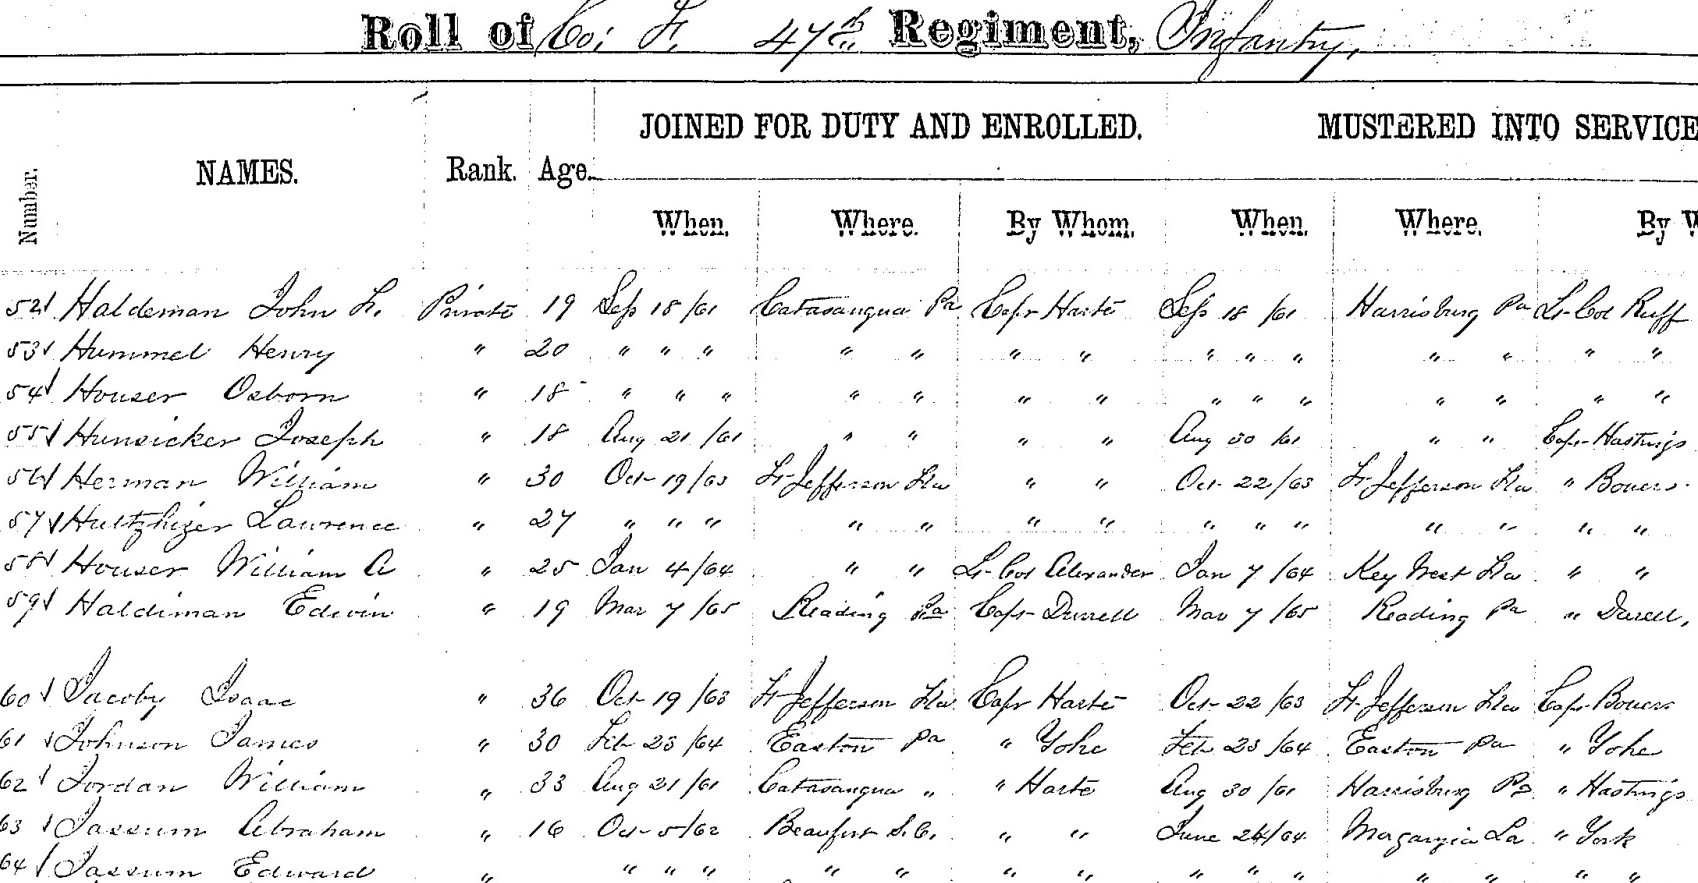 Roll of Co: F. 47th Regiment, Infantry.
JOINED FOR DUTY AND ENROLLED. MUSTERED INTO SERVICE
Number. NAMES. Rank. Age.
When. Where. By Whom. When. Where. By W
52 Haldeman John F. Private 19 Sep 18/61 Catasauqua Pa Capt Harte Sep 18/61 Harrisburg Pa Lt Col Ruff
53 Hummel Henry " 20 " " " " " " " " " " " " " "
54 Houser Osborn " 18 " " " " " " " " " " " " " "
55 Hunsicker Joseph " 18 Aug 21/61 " " " " Aug 30/61 " " Capt Hastings
56 Herman William " 30 Oct 19/63 Ft Jefferson Fla " " Oct 22/63 Ft Jefferson Fla " Bowers
57 Hultzhizer Lawrence " 27 " " " " " " " " " " " " " "
58 Houser William A " 25 Jan 4/64 " " Lt Col Alexander Jan 7/64 Key West Fla " "
59 Haldiman Edwin " 19 Mar 7/65 Reading Pa Capt Durrell Mar 7/65 Reading Pa " Durell,
60 Jacoby Isaac " 36 Oct 19/63 Ft Jefferson Fla Capt Harte Oct 22/63 Ft Jefferson Fla Capt Bowers
61 Johnson James " 30 Feb 23/64 Easton Pa " Yohe Feb 23/64 Easton Pa " Yohe
62 Jordan William " 33 Aug 21/61 Catasauqua " " Harte Aug 30/61 Harrisburg Pa " Hastings
63 Jassum Abraham " 16 Oct 5/62 Beaufort S.C. " " June 24/64 Morganzia La " York
64 Jassum Edward " " " " " " " " " " " " " "